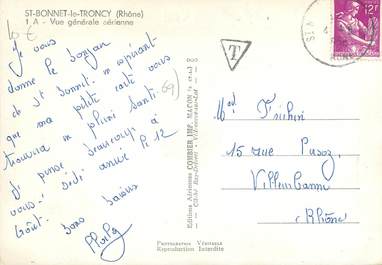 ST-BONNET-le-TRONCY (Rhône)
1 A - Vue générale aérienne
10 €
Je vous
donne le bonjour
de St Bonnet. en espérant
que ma petite carte vous
trouvera en pleine Santé.
69)
Je pense beaucoup à
vous. arrivé le 12
Août. Bons baisers
T
12F
Editions Aériennes COMBIER IMP. MACON
PHOTOGRAPHIE VÉRITABLE
Reproduction Interdite
15 rue
Villeurbanne
Rhône